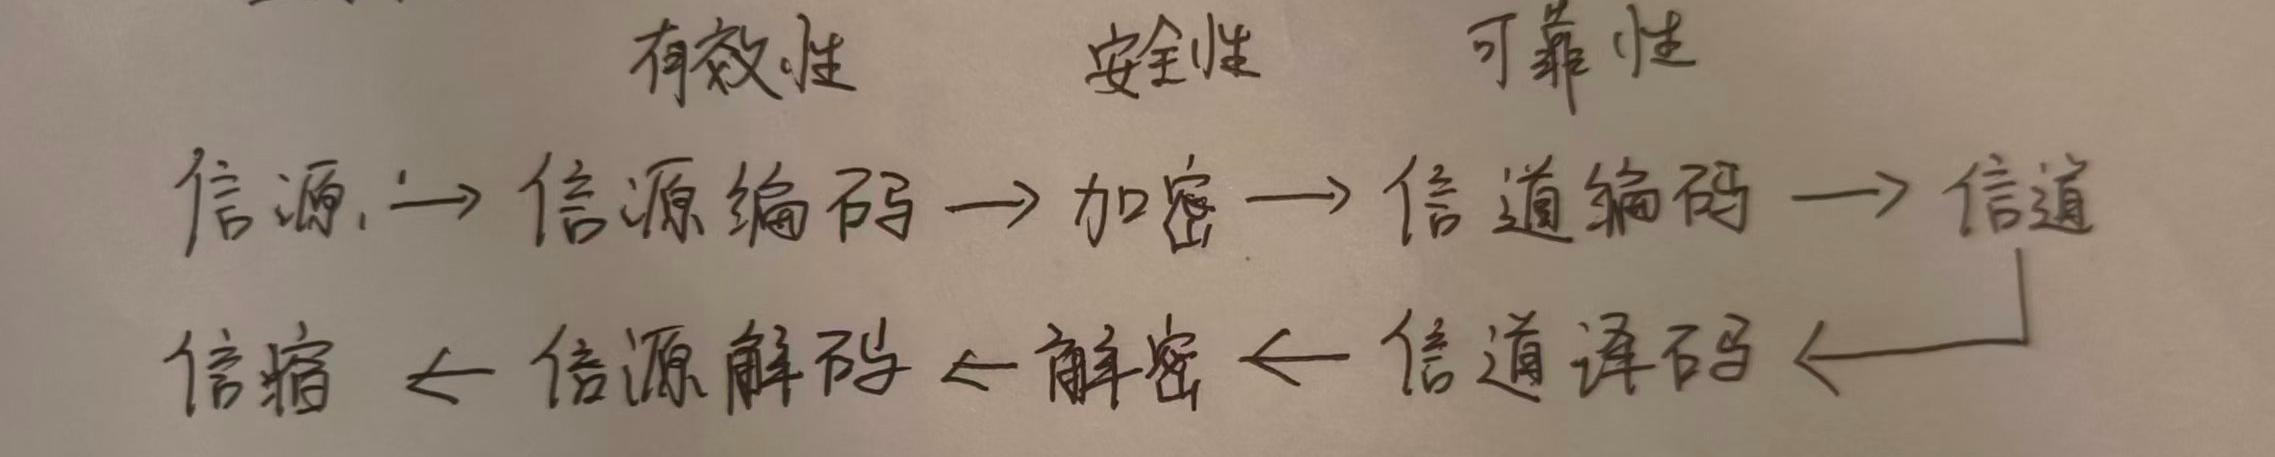 有效性 安全性 可靠性
信源 → 信源编码 → 加密 → 信道编码 → 信道
信宿 ← 信源解码 ← 解密 ← 信道译码 ←